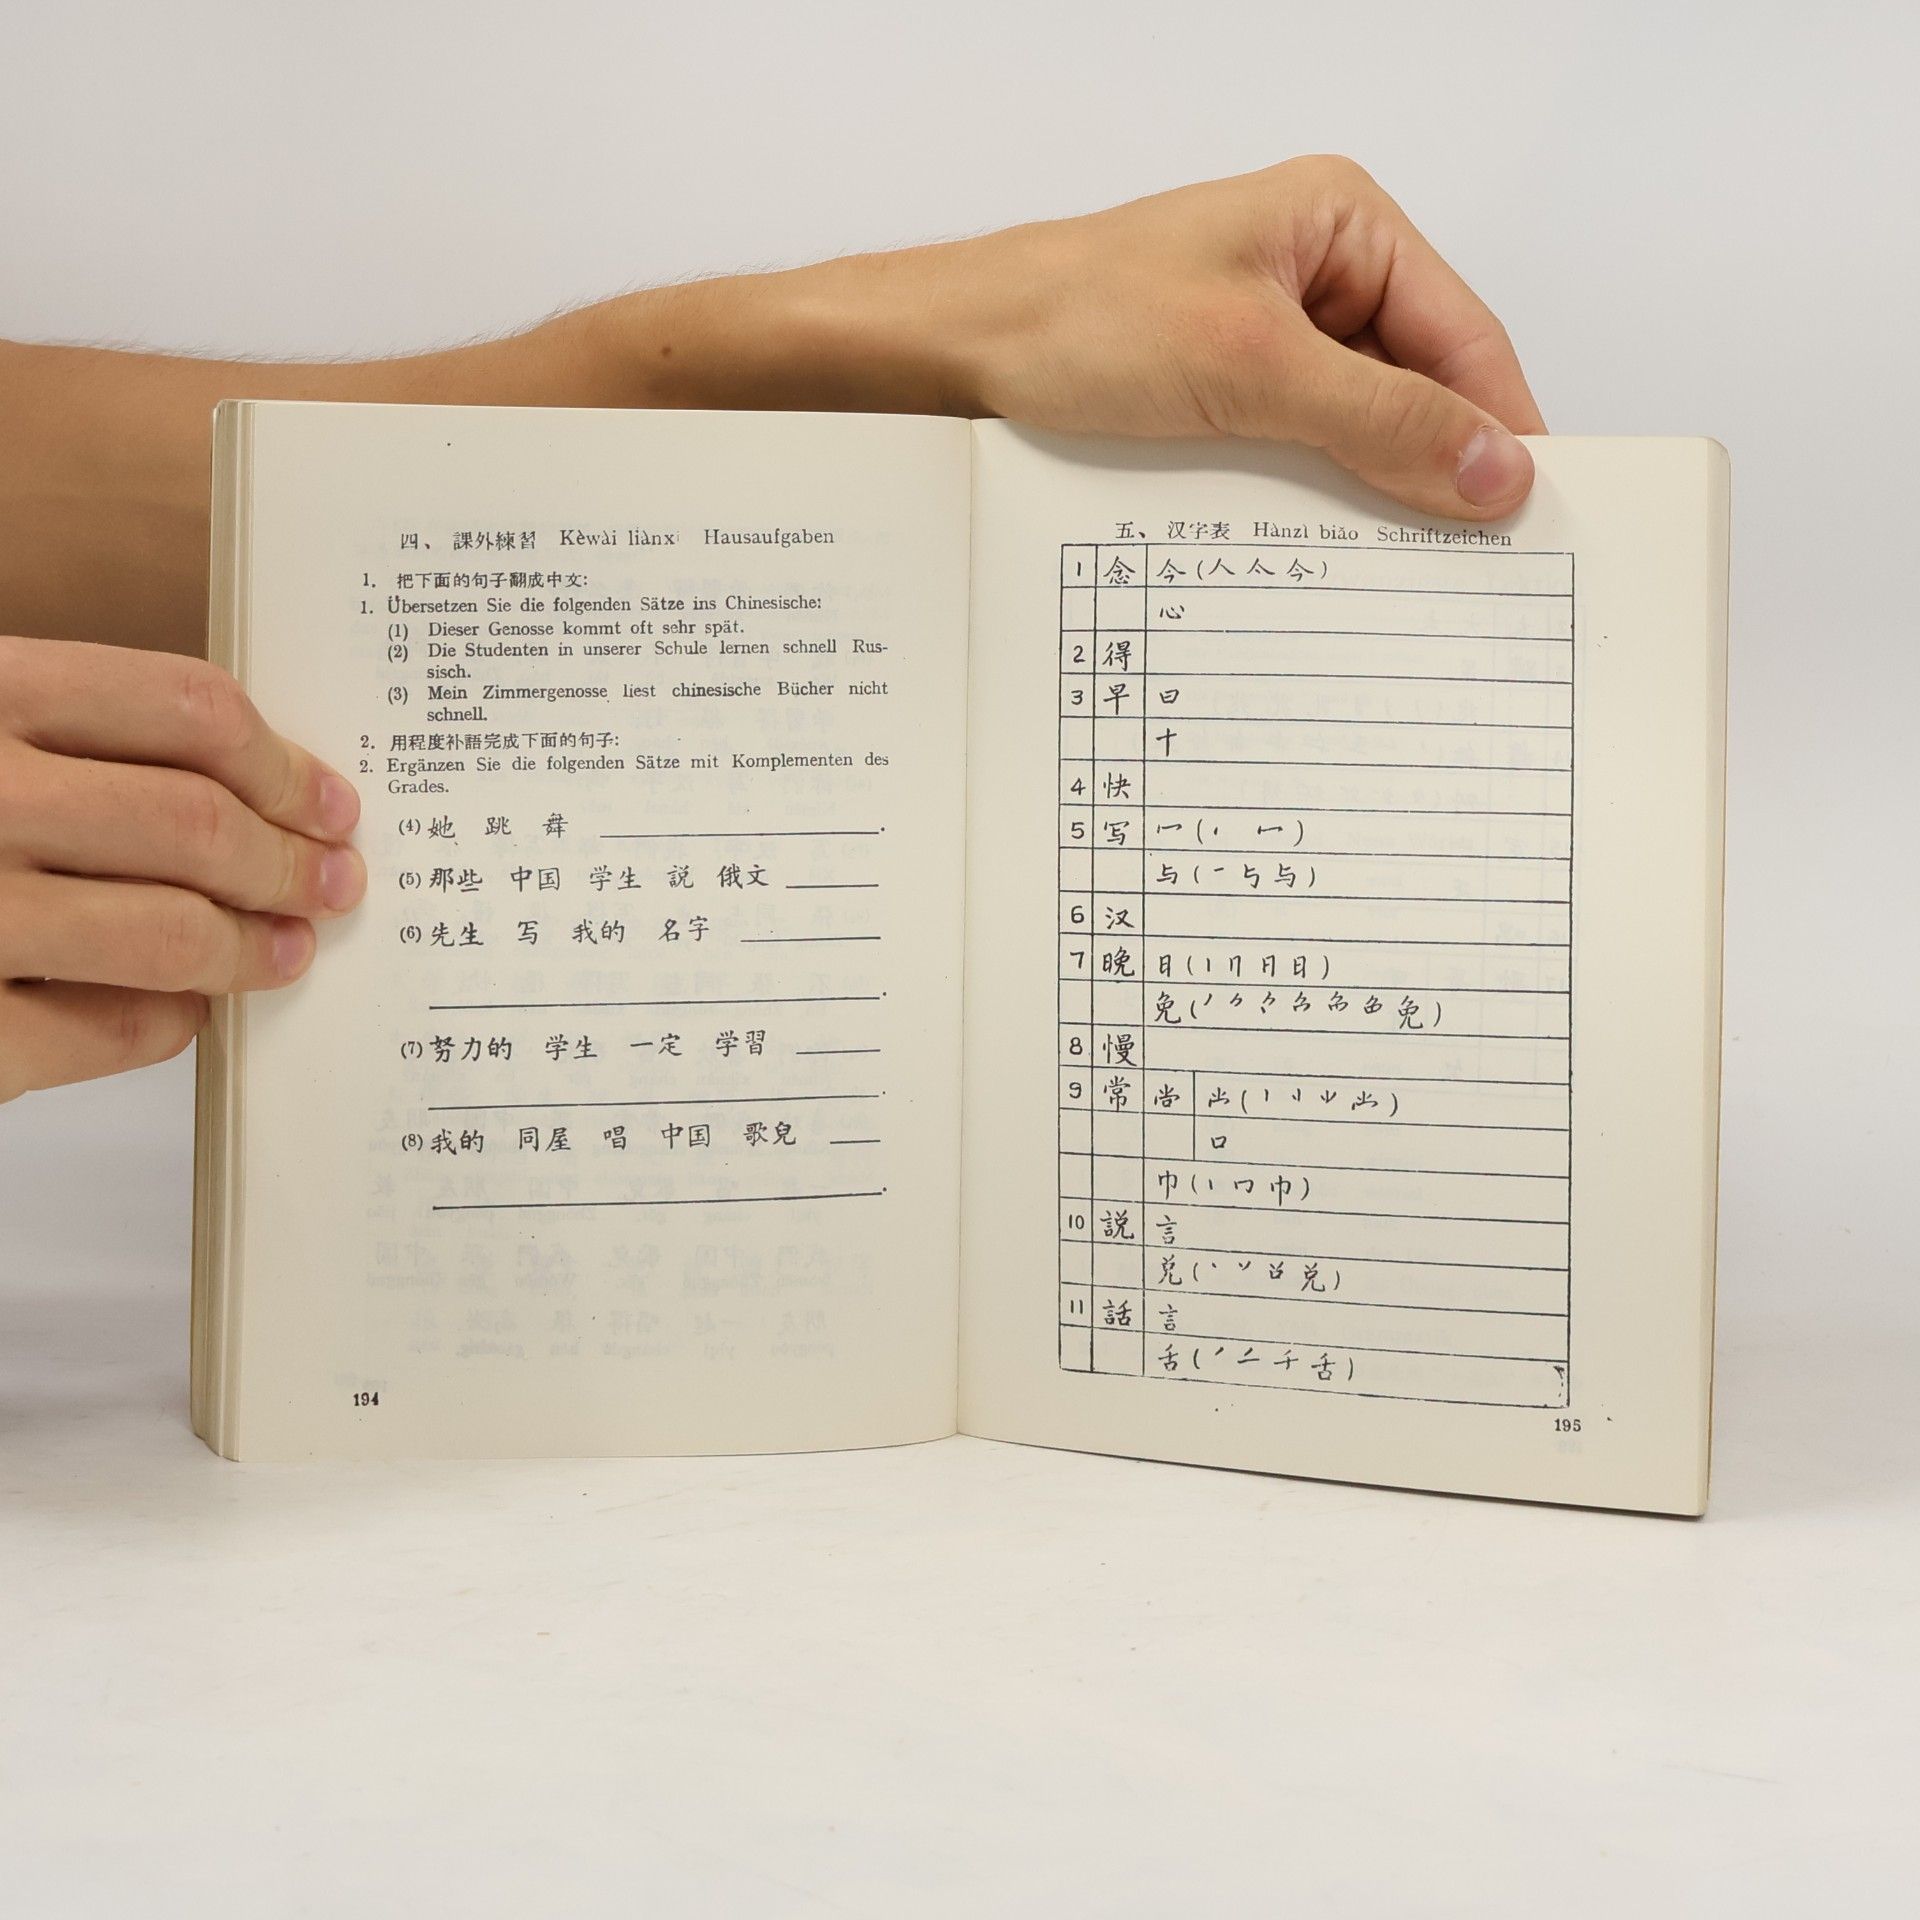 四、 課外練習 Kèwài liànxí Hausaufgaben
1. 把下面的句子翻成中文:
1. Übersetzen Sie die folgenden Sätze ins Chinesische:
(1) Dieser Genosse kommt oft sehr spät.
(2) Die Studenten in unserer Schule lernen schnell Rus-
sisch.
(3) Mein Zimmergenosse liest chinesische Bücher nicht
schnell.
2. 用程度补語完成下面的句子:
2. Ergänzen Sie die folgenden Sätze mit Komplementen des
Grades.
(4) 她 跳 舞 ________.
(5) 那些 中国 学生 説 俄文 ________
(6) 先生 写 我的 名字 ________
________.
(7) 努力的 学生 一定 学習 ________
________.
(8) 我的 同屋 唱 中国 歌兒 ________
________.
194
五、 汉字表 Hànzì biǎo Schriftzeichen
1 念 今 (人 亽 今)
心
2 得
3 早 日
十
4 快
5 写 冖 (丶 冖)
与 (一 与 与)
6 汉
7 晚 日 (丨 冂 月 日)
免
8 慢
9 常 尚
口
巾 (丨 冂 巾)
10 説 言
兑
11 話 言
舌 (丿 二 千 舌)
195